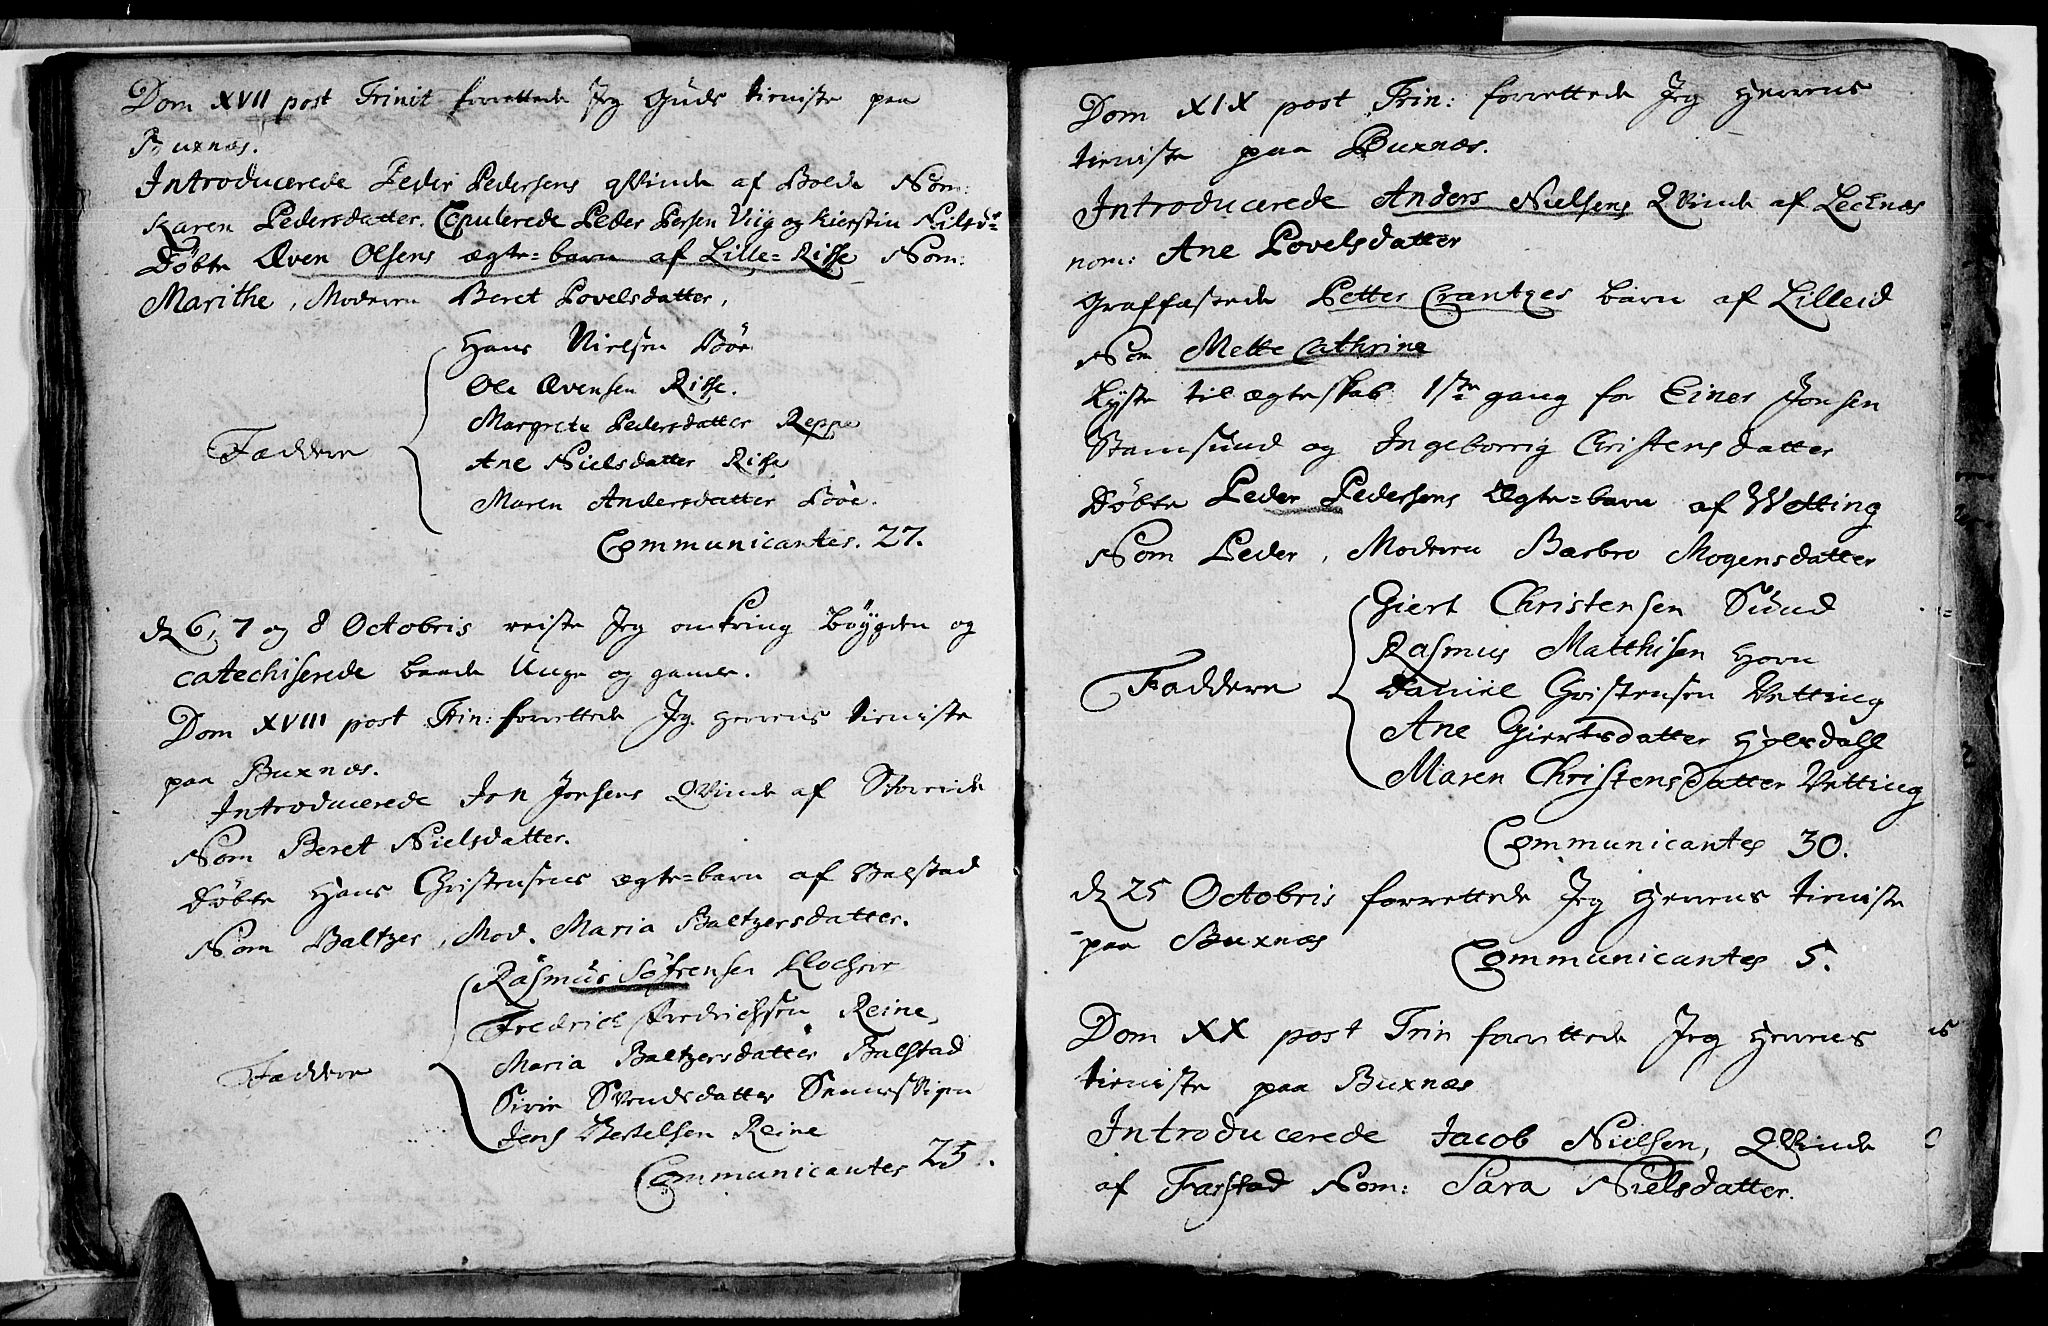 Dom XVII post Trinit forrettede Jeg Guds tieniste paa
Buxnæs.
Introducerede Peder Pedersens qvinde af Bolde Nom:
Karen Pedersdatter. Copulerede Peder Persen Viig og Kierstin Nilsd:
Døbte Even Olsens ægte=barn af Lille=Risse Nom:
Marithe, Moderen Beret Povelsdatter,
Hans Nielsen Böe
Ole Evensen Risse.
Margrete Pedersdatter Reppe
Faddere
Ane Nielsdatter Risse
Maren Andersdatter Böe.
Communicantes. 27.
d 6, 7 og 8 Octobris reiste Jeg omkring Böÿgden og
catechiserede baade Unge og gamle.
Dom XVIII post Trin: forrettede Jeg Herrens tieniste
paa Buxnæs.
Introducerede Jon Jonsens Qvinde af
Nom Beret Nielsdatter.
Døbte Hans Christensens ægte=barn af Balstad
Nom Baltzer, Mod. Maria Baltzersdatter.
Rasmus Söfrensen Klocher
Fredrich Fredrichsen Reine,
Maria Baltzersdatter Balstad
Faddere
Sirie Svendsdatter
Jens Bertelsen Reine
Communicantes 25.
Dom XIX post Trin: forrettede Jeg Herrens
tieniste paa Buxnæs.
Introducerede Anders Nielsens Qvinde af Lecknæs
nom: Ane Povelsdatter
Graffæstede Petter Crantzes barn af Lilleid
Nom Mette Cathrine
Lyste til ægteskab 1ste gang for Einer Jonsen
Stamsund og Ingeborrig Christensdatter
Døbte Peder Pedersens Ægte=barn af Wetting
Nom Peder, Moderen Barbro Mogensdatter
Giert Christensen Sund
Rasmus Matthisen Horn
Faddere
Daniel Christensen Vetting
Ane Giertsdatter Holsdahl
Maren Christensdatter Vetting
Communicantes 30.
d 25 Octobris forrettede Jeg Herrens tieniste
paa Buxnæs
Communicantes 5.
Dom XX post Trin forrettede Jeg Herrens
tieniste paa Buxnæs
Introducerede Jacob Nielsen, Qvinde
af Farstad Nom: Sara Nielsdatter.